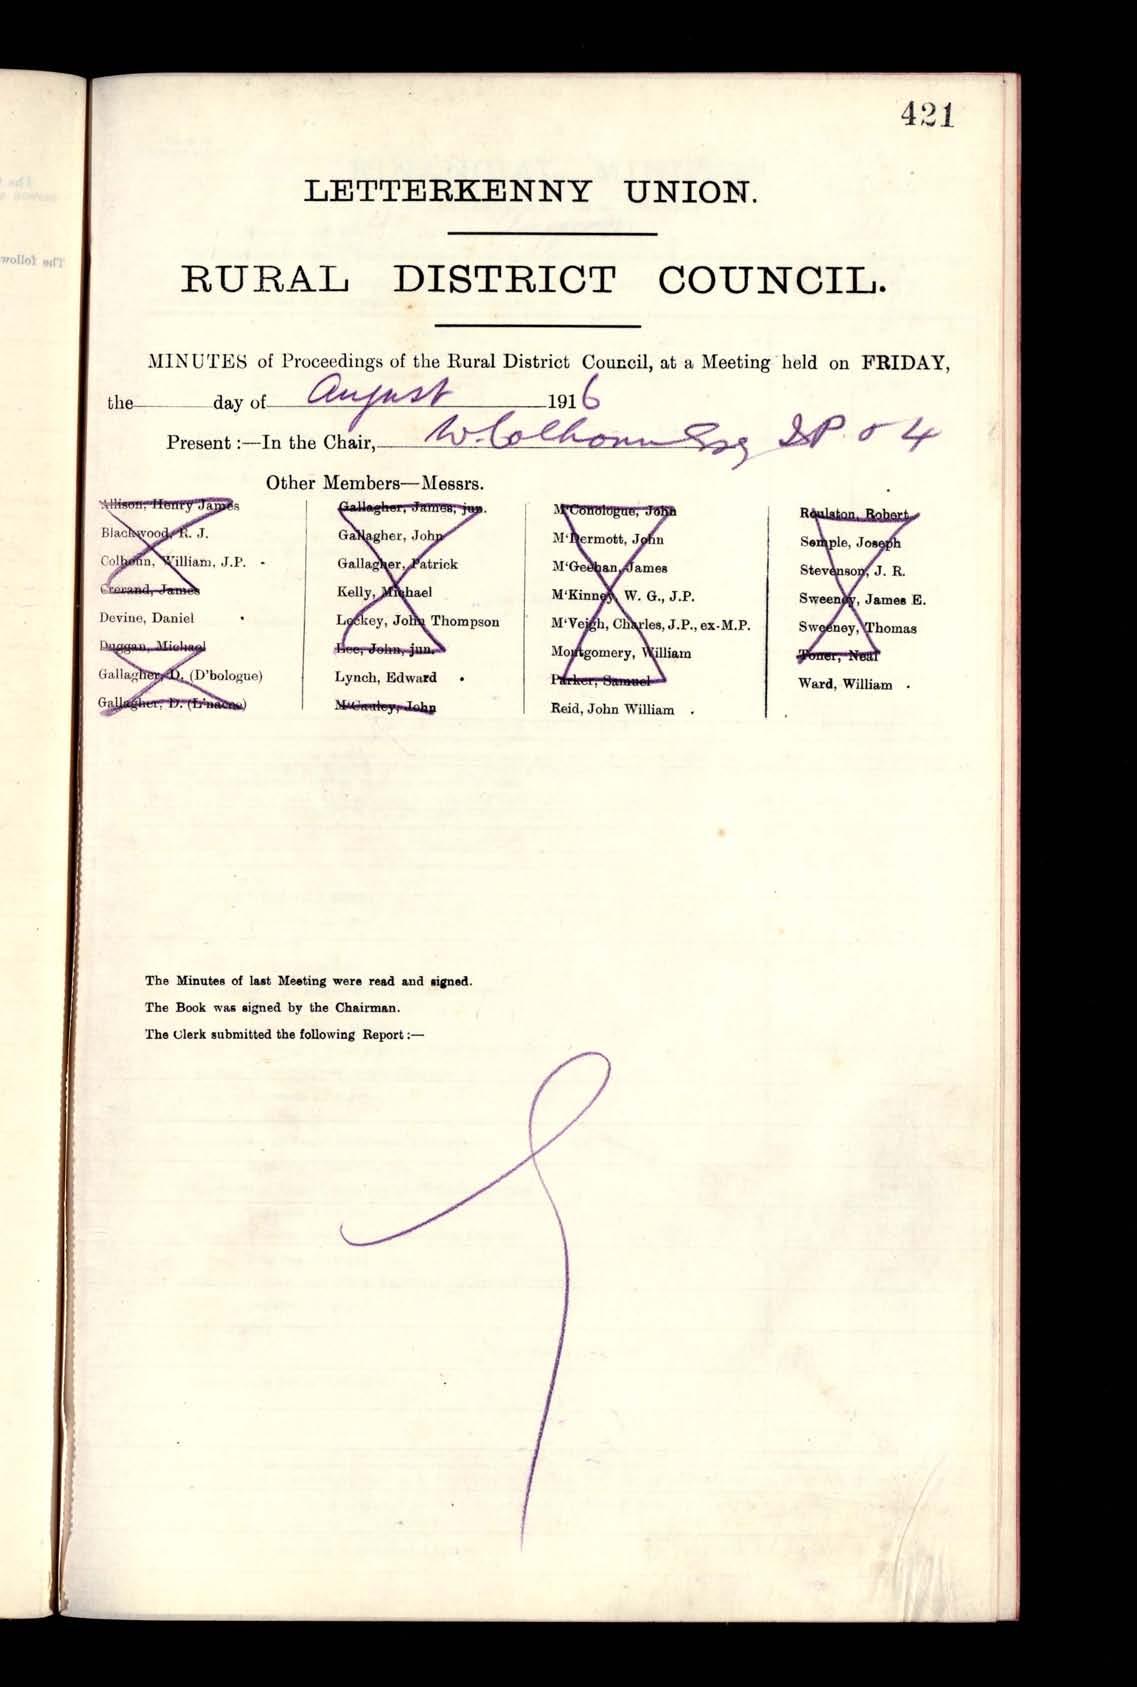 421
LETTERKENNY UNION.
RURAL DISTRICT COUNCIL.
MINUTES of Proceedings of the Rural District Council, at a Meeting held on FRIDAY,
the day of August 1916
Present :—In the Chair, W. Colhoun Esq J.P. & 4
Other Members—Messrs.
Allison, Henry James
Blackwood, R. J.
Colhoun, William, J.P.
Crerand, James
Devine, Daniel
Duggan, Michael
Gallagher, D. (D'bologue)
Gallagher, D. (L'nacre)
Gallagher, James, jun.
Gallagher, John
Gallagher, Patrick
Kelly, Michael
Lockey, John Thompson
Lee, John, jun.
Lynch, Edward
M'Cauley, John
M'Conologue, John
M'Dermott, John
M'Geehan, James
M'Kinney, W. G., J.P.
M'Veigh, Charles, J.P., ex-M.P.
Montgomery, William
Parker, Samuel
Reid, John William
Roulston, Robert
Semple, Joseph
Stevenson, J. R.
Sweeney, James E.
Sweeney, Thomas
Toner, Neal
Ward, William
The Minutes of last Meeting were read and signed.
The Book was signed by the Chairman.
The Clerk submitted the following Report :—